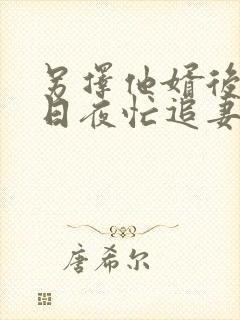 另擇他婿後
日夜忙追妻
唐希尔